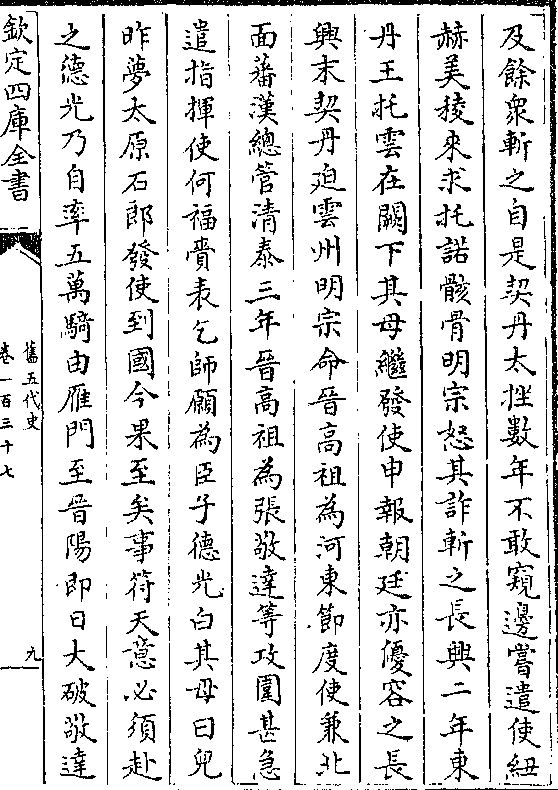 及餘衆斬之自是契丹大挫數年不敢窺邊嘗遣使紐
赫美稜來求托諾骸骨明宗怒其詐斬之長興二年東
丹王托雲在闕下其母繼發使申報朝廷亦優容之長
興末契丹迫雲州明宗命晉高祖為河東節度使兼北
面蕃漢總管清泰三年晉高祖為張敬達等攻圍甚急
遣指揮使何福賫表乞師願為臣子德光白其母曰兒
昨夢太原石郎發使到國今果至矣事符天意必須赴
之德光乃自率五萬騎由雁門至晉陽即日大破敬達
欽定四庫全書
舊五代史
卷一百三十七
九